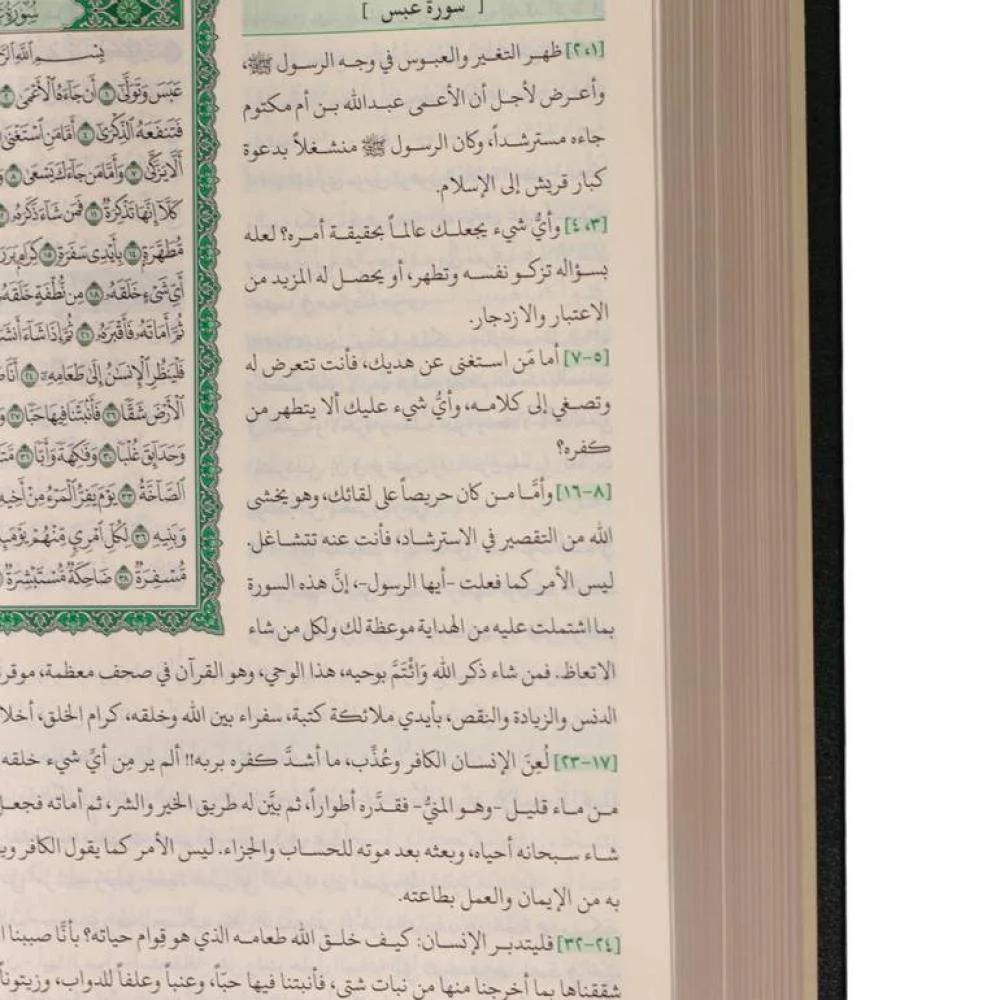 [ سورة عبس ]
[١، ٢] ظهر التغير والعبوس في وجه الرسول ﷺ،
وأعرض لأجل أن الأعمى عبدالله بن أم مكتوم
جاءه مسترشداً، وكان الرسول ﷺ منشغلاً بدعوة
كبار قريش إلى الإسلام.
[٣، ٤] وأيُّ شيء يجعلك عالماً بحقيقة أمره؟ لعله
بسؤاله تزكو نفسه وتطهر، أو يحصل له المزيد من
الاعتبار والازدجار.
[٥-٧] أما مَن استغنى عن هديك، فأنت تتعرض له
وتصغي إلى كلامه، وأيُّ شيء عليك ألا يتطهر من
كفره؟
[٨-١٦] وأمَّا من كان حريصاً على لقائك، وهو يخشى
الله من التقصير في الاسترشاد، فأنت عنه تتشاغل.
ليس الأمر كما فعلت -أيها الرسول-، إنَّ هذه السورة
بما اشتملت عليه من الهداية موعظة لك ولكل من شاء
الاتعاظ. فمن شاء ذكر الله وَائْتَمَّ بوحيه، هذا الوحي، وهو القرآن في صحف معظمة، موقر
الدنس والزيادة والنقص، بأيدي ملائكة كتبة، سفراء بين الله وخلقه، كرام الخلق، أخلا
[١٧-٢٣] لُعِنَ الإنسان الكافر وعُذِّب، ما أشدَّ كفره بربه!! ألم ير مِن أيِّ شيء خلقه
من ماء قليل -وهو المنيُّ- فقدَّره أطواراً، ثم بيَّن له طريق الخير والشر، ثم أماته فجعل
شاء سبحانه أحياه، وبعثه بعد موته للحساب والجزاء. ليس الأمر كما يقول الكافر وي
به من الإيمان والعمل بطاعته.
[٢٤-٣٢] فليتدبر الإنسان: كيف خلق الله طعامه الذي هو قِوام حياته؟ بأنَّا صببنا ا
شققناها بما أخرجنا منها من نبات شتى، فأنبتنا فيها حبّاً، وعنباً وعلفاً للدواب، وزيتوناً
سُورَةُ
بِسْمِ اللَّهِ الرَّ
عَبَسَ وَتَوَلَّىٰ ١ أَن جَاءَهُ الْأَعْمَىٰ ٢
فَتَنفَعَهُ الذِّكْرَىٰ ٤ أَمَّا مَنِ اسْتَغْنَىٰ
أَلَّا يَزَّكَّىٰ ٧ وَأَمَّا مَن جَاءَكَ يَسْعَىٰ ٨ وَ
كَلَّا إِنَّهَا تَذْكِرَةٌ ١١ فَمَن شَاءَ ذَكَرَهُ
مُّطَهَّرَةٍ ١٤ بِأَيْدِي سَفَرَةٍ ١٥ كِرَامٍ بَرَرَ
أَيِّ شَيْءٍ خَلَقَهُ ١٨ مِن نُّطْفَةٍ خَلَقَهُ
ثُمَّ أَمَاتَهُ فَأَقْبَرَهُ ٢١ ثُمَّ إِذَا شَاءَ أَنشَ
فَلْيَنظُرِ الْإِنسَانُ إِلَىٰ طَعَامِهِ ٢٤ أَنَّا صَ
الْأَرْضَ شَقًّا ٢٦ فَأَنبَتْنَا فِيهَا حَبًّا ٢٧ وَ
وَحَدَائِقَ غُلْبًا ٣٠ وَفَاكِهَةً وَأَبًّا ٣١ مَّتَ
الصَّاخَّةُ ٣٣ يَوْمَ يَفِرُّ الْمَرْءُ مِنْ أَخِيهِ
وَبَنِيهِ ٣٦ لِكُلِّ امْرِئٍ مِّنْهُمْ يَوْمَئِ
مُّسْفِرَةٌ ٣٨ ضَاحِكَةٌ مُّسْتَبْشِرَةٌ